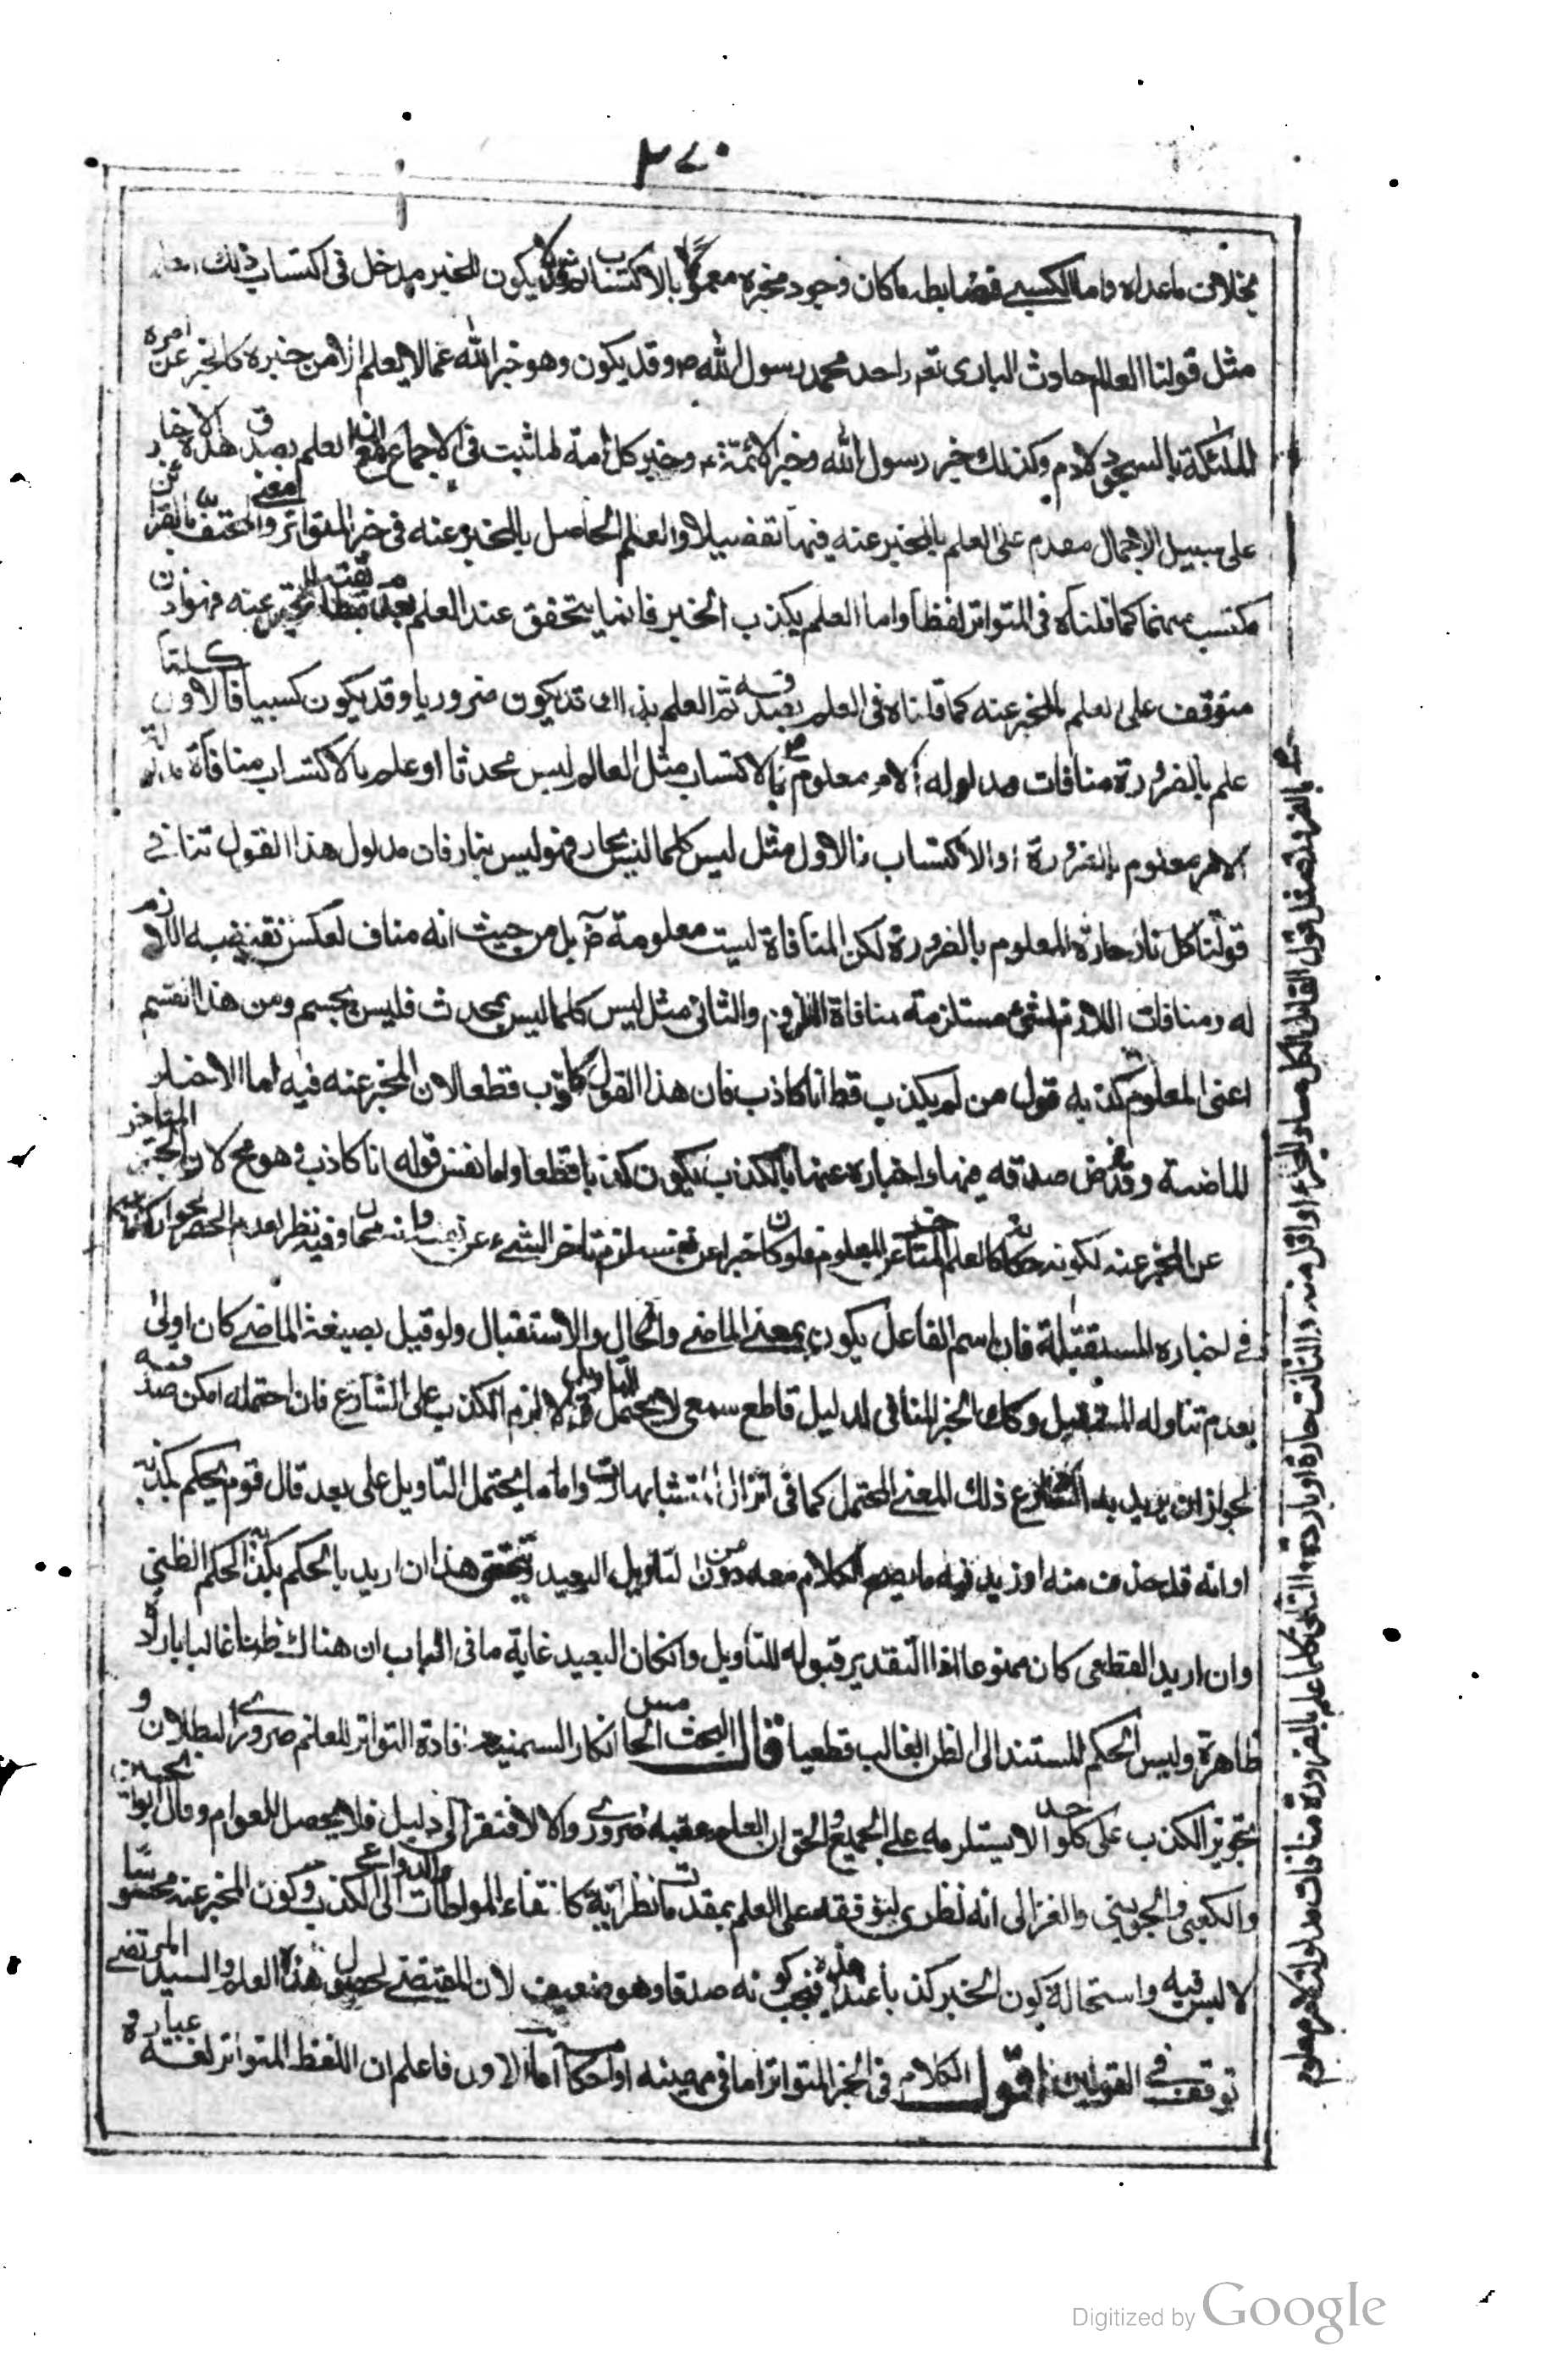 ٣٧٠
بخلاف ما عداه واما الكسبي فضابطه ما كان وجود مخبره معلوما بالاكتساب وقد لا يكون للخبر مدخل فى اكتساب ذلك
مثل قولنا العالم حادث البارى تعم واحد محمد رسول الله ص وقد يكون وهو خبر الله عما لا يعلم الا من خبره كالخبر عن امره
الملئكة بالسجود لادم وكذلك خبر رسول الله وخبر الائمة ع وخبر كل امة لما ثبت فى الاجماع العلم بصدق هذه الاخبار
على سبيل الاجمال مقدم على العلم بالمخبر عنه فيها تفصيلا والعلم الحاصل بالمخبر عنه فى خبر المتواتر معنى والمحتف بالقرائن
مكتسب منهما كما قلناه فى المتواتر لفظا واما العلم بكذب الخبر فانما يتحقق عند العلم المخبر عنه فهو اذن
متوقف على العلم بالمخبر عنه كما قلناه فى العلم بصدقه ثم العلم بذلك قد يكون ضروريا وقد يكون كسبيا فالاول كلما
علم بالضرورة منافات مدلوله لامر معلوم بالاكتساب مثل العالم ليس محدثا او علم بالاكتساب منافاة مدلوله
لامر معلوم بالضرورة او الاكتساب فالاول مثل ليس كلما ليس بحار فهو ليس بنار فان مدلول هذا القول تنافي
قولنا كل نار حارة المعلوم بالضرورة لكن المنافاة ليست معلومة بل من حيث انه مناف لعكس نقيضه اللازم
له ومنافات اللازم لشئ مستلزمة منافاة الملزوم والثانى مثل ليس كلما ليس بمحدث فليس بجسم ومن هذا القسم
اعنى المعلوم كذبه قول من لم يكذب قط انا كاذب فان هذا القول كاذب قطعا لان المخبر عنه فيه اما الاخبار
الماضية وقد فرض صدقه فيها واخباره عنها بالكذب يكون كذبا قطعا واما نفس قوله انا كاذب وهو مح لان الخبر المتاخر
عن المخبر عنه لكونه كالعلم المتاخر عن المعلوم فلو كان خبرا عن نفسه لزم تاخر الشيء عن نفسه وانه محال وفيه نظر لعدم الحصر لجواز
فى اخباره المستقبلة فان اسم الفاعل يكون بمعنى الماضي والحال والاستقبال ولو قيل بصيغة الماضي كان اولى
لعدم تناوله المستقبل وكذا الخبر المنافى لدليل قاطع سمعى لا يحتمل التاويل والا لزم الكذب على الشارع فان احتمله امكن صدقه
لجواز ان يريد به الشارع ذلك المعنى المحتمل كما فى انزال المتشابهات واما ما يحتمل التاويل على بعد قال قوم يحكم بكذبه
او انه قد حذف منه او زيد فيه ما يصح الكلام معه من دون التاويل البعيد وتحقيق هذا ان اريد بالحكم بكذبه الحكم الظنى
وان اريد القطعى كان ممنوعا اذ التقدير قبوله للتاويل وان كان البعيد غاية ما فى الباب ان هناك ظنا غالبا بارادة
ظاهره وليس الحكم المستند الى الظن الغالب قطعيا قال البحث الخامس انكار السمنية افادة التواتر للعلم ضرورى البطلان و
تجويز الكذب على كل واحد لا يستلزمه على الجميع والحق ان العلم عقيبه ضروري والا لافتقر الى دليل فلا يحصل للعوام وقال ابو الحسين
والكعبى والجوينى والغزالى انه نظرى لتوقفه على العلم بمقدمات نظرية كانتفاء المواطات والدواعى الى الكذب وكون المخبر عنه محسوسا
لا لبس فيه واستحالة كون الخبر كذبا عند هذه فيجب كونه صدقا وهو ضعيف لان المقتضى لحصول هذه العلم والسيد المرتضى
توقف في القولين اقول الكلام فى الخبر المتواتر اما فى مهيته او احكامه اما الاول فاعلم ان اللفظ المتواتر لغة عبارة
قول القائل الكل مساو للجزء او اقل منه والثالث حارة او باردة والثانى كلما علم بالضرورة منافات مدلوله لامر معلوم